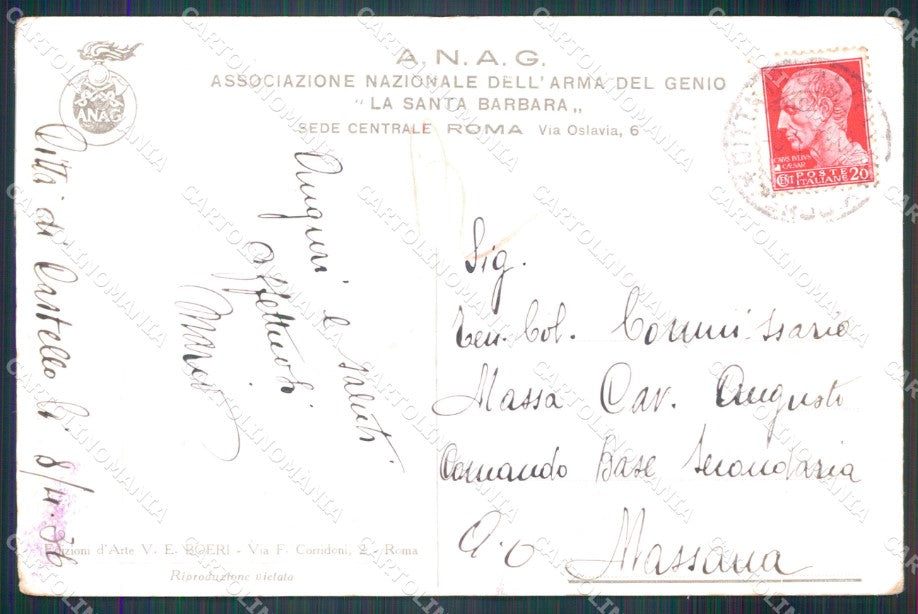 A.N.A.G.
ASSOCIAZIONE NAZIONALE DELL'ARMA DEL GENIO
"LA SANTA BARBARA„
SEDE CENTRALE ROMA Via Oslavia, 6
ANAG
CAIVS IVLIVS
CAESAR
CENT POSTE ITALIANE 20
Città di Castello li 8/4.36
Auguri e saluti
affettuosi
Mario
Sig.
Ten. Col. Commissario
Massa Cav. Augusto
Comando Base Secondaria
A.O Massaua
Edizioni d'Arte V. E. BOERI - Via F. Corridoni, 2 - Roma
Riproduzione vietata
CARTOLINOMANIA